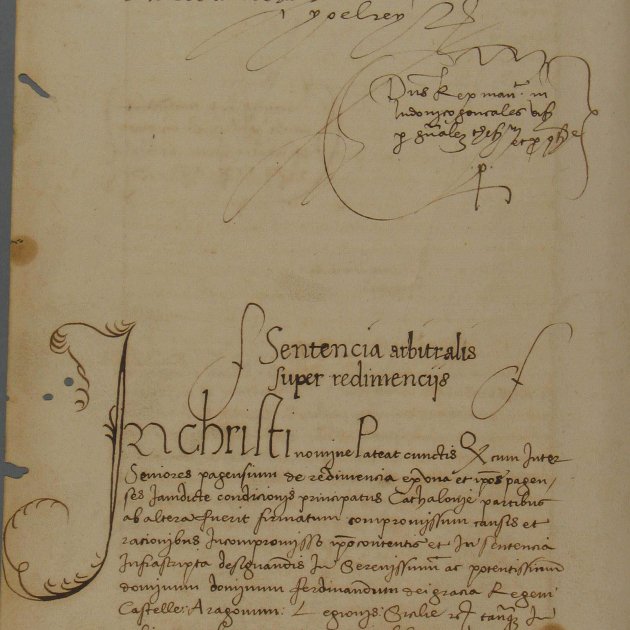 yo el rey
Dns Rex man.t m
ludovico gonçales
p gnalez thesr et p
p.
Sentencia arbitralis
super redimencijs
In christi nomine Pateat cunctis Q cum Inter
Seniores pagensium de redimencia ex una et ipos pagen-
ses Jamdicte condicionis principatus Cathalonie partibus
ab altera fuerit firmatum compromissum causis et
racionibus Incompromisso ipo contentis et In sentencia
Infrascripta designandis In Serenissimum ac potentissimum
dominum dominum Ferdinandum dei gracia Regem
Castelle: Aragonum: Legionis: Sicilie In